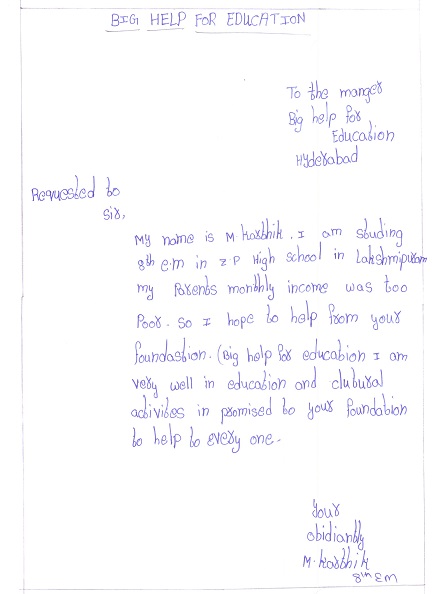 BIG HELP FOR EDUCATION
To the manger
Big help for
Education
Hyderabad
Requested to
sir,
My name is M Karthik. I am studing
8th e.m in Z P High school in Lakshmipuram
my Parents monthly income was too
Poor. so I hope to help from your
foundastion. (Big help for education I am
very well in education and clutural
activites in promised to your foundation
to help to every one.
your
obidiantly
M. Karthik
8th EM